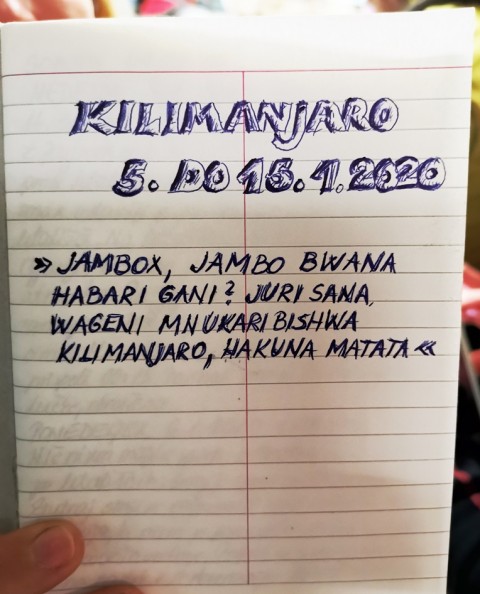 KILIMANJARO
5. DO 15.1.2020
»JAMBOX, JAMBO BWANA
HABARI GANI? JURI SANA,
WAGENI MNUKARIBISHWA
KILIMANJARO, HAKUNA MATATA«